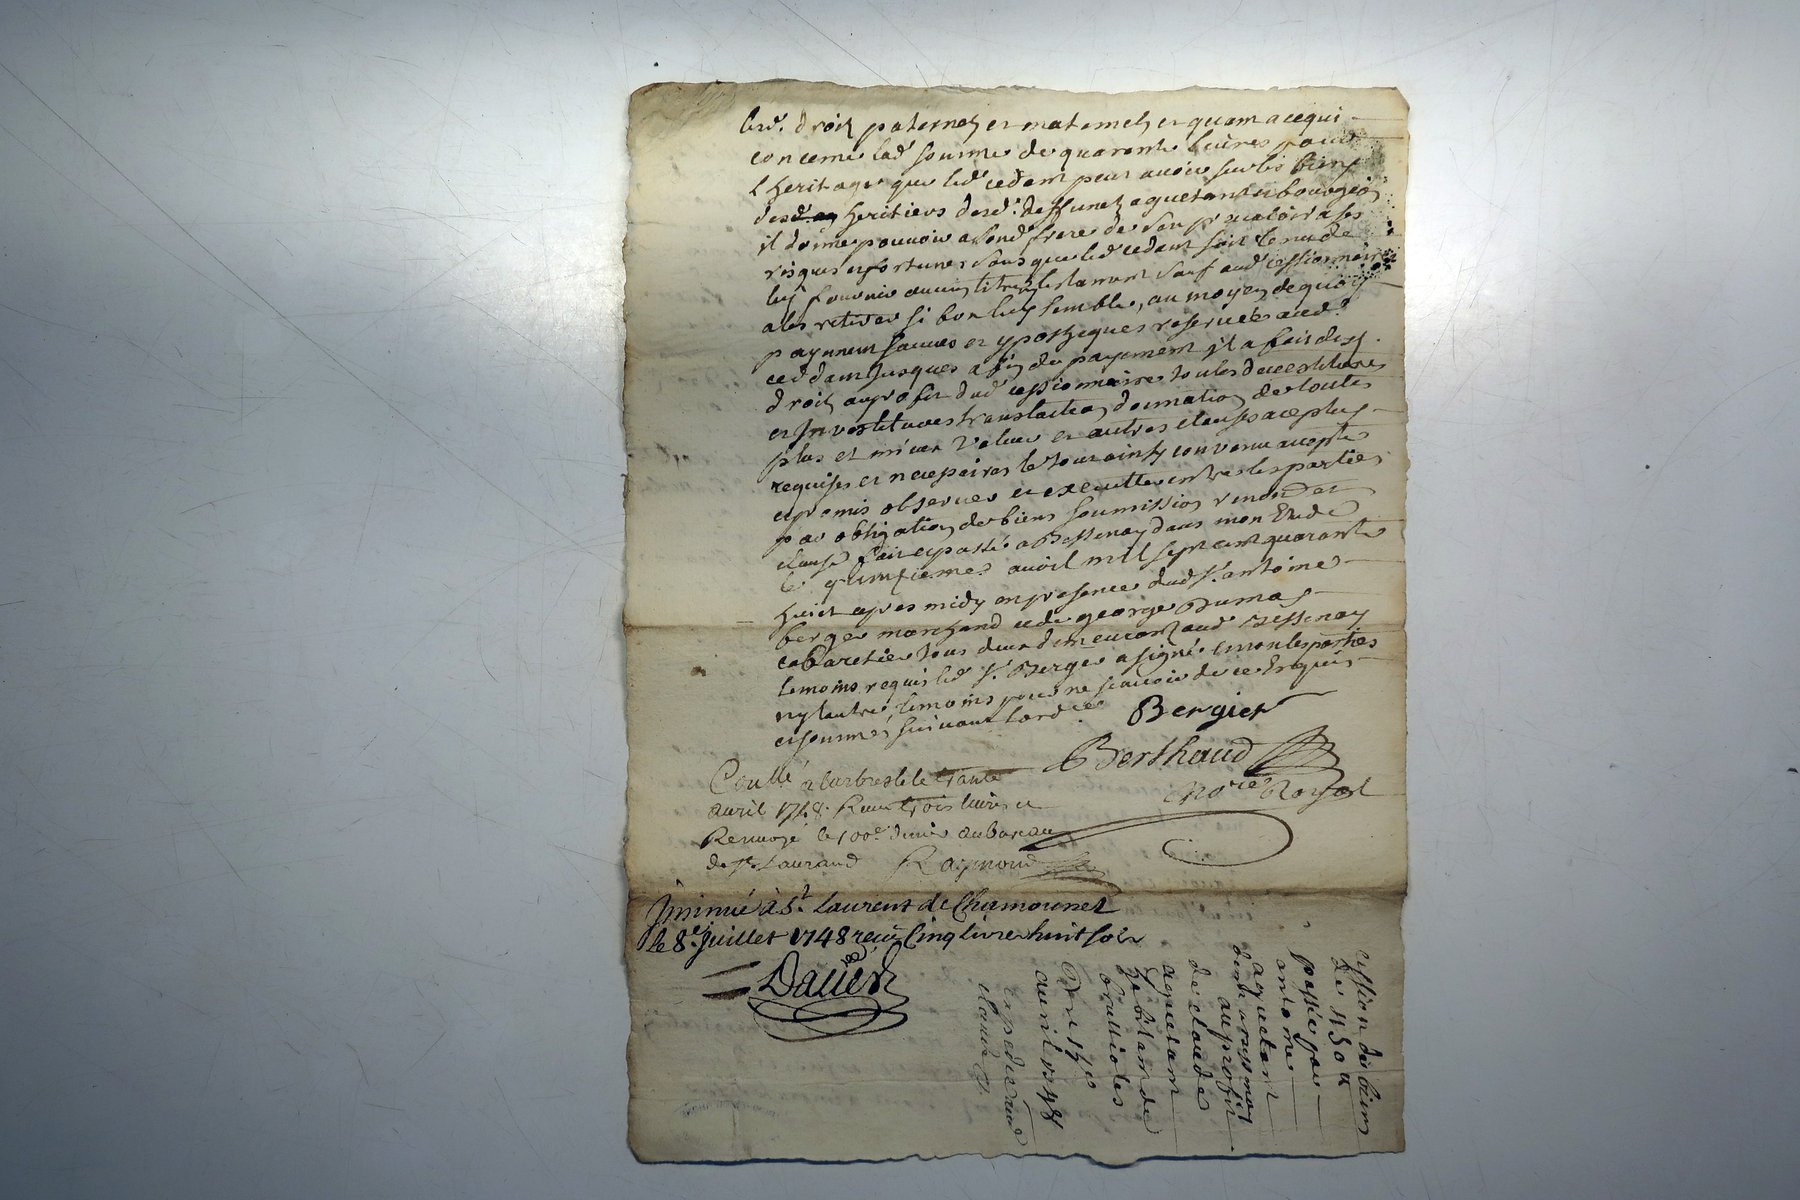 lesd. droits paternels et maternels et quant a ce qui
concerne lad. somme de quarante livres pour
l'heritage que led. cedant peut avoir sur les biens
desd. heritiers desd. deffunct aguetant et bourgeois
il donne pouvoir a sond. frere de san prevaloir a ses
risques et fortunes sans que led. cedant soit tenu de
luy fournir aucuns titres sauf aud. cessionnaire
a les retirer si bon luy semble, au moyen de quoy
payement sauves et ypotheques reservées aud.
ceddant jusques a fin de payement il a fait desd.
droits au profit dud. cessionnaire toutes devestitures
et Investitures translation donnation de toutes
plus et mieux values et autres clauses a ce plus
requises et necessaires le tout ainsy convenu accepté
et promis observer et executter entre les parties
par obligation de biens soumission renon et
clause fait et passé a Bessenay dans mon Etude
le quinzieme avril mil sept cent quarante
huict apres midy en presence dud. Sr. antoine
berger marchand et de george Dumas
cabaretier tous deux demeurant aud. Bessenay
temoins requis led. Sr. Berger a signé et non les parties
ny l'autre temoins pour ne scavoir de ce Enquis
et sommés suivant l'ord.ce
Bergier
Berthaud
No.re Royal
Coullé a larbresle le trante
avril 1748. Reçu trois livres et
Renvoyé le 100e. denier au bureau
de St. Laurand Raymond
Jnsinué à St. Laurent de Chamounet
le 8e. Juillet 1748 reçu Cinq livres huit sols
Daved
cession de biens
de 450 ll
passée par
antoine
aguetant
de
au profit
de claude
aguetant
de
brullioles
Du 15e
avril 1748
expedié aud.
claude